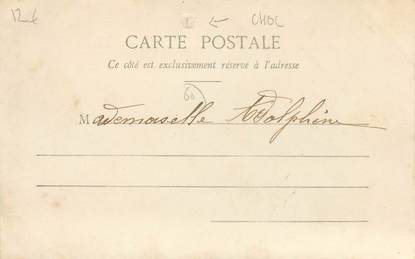 12€ CHOC
CARTE POSTALE
Ce côté est exclusivement réservé à l'adresse
60
Mademoiselle Adolphine